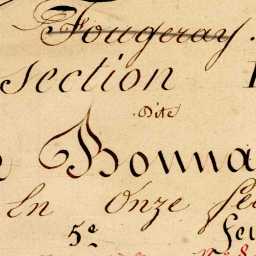 Fougeray.
section
Dite
Bonna
En Onze feu
5e feu